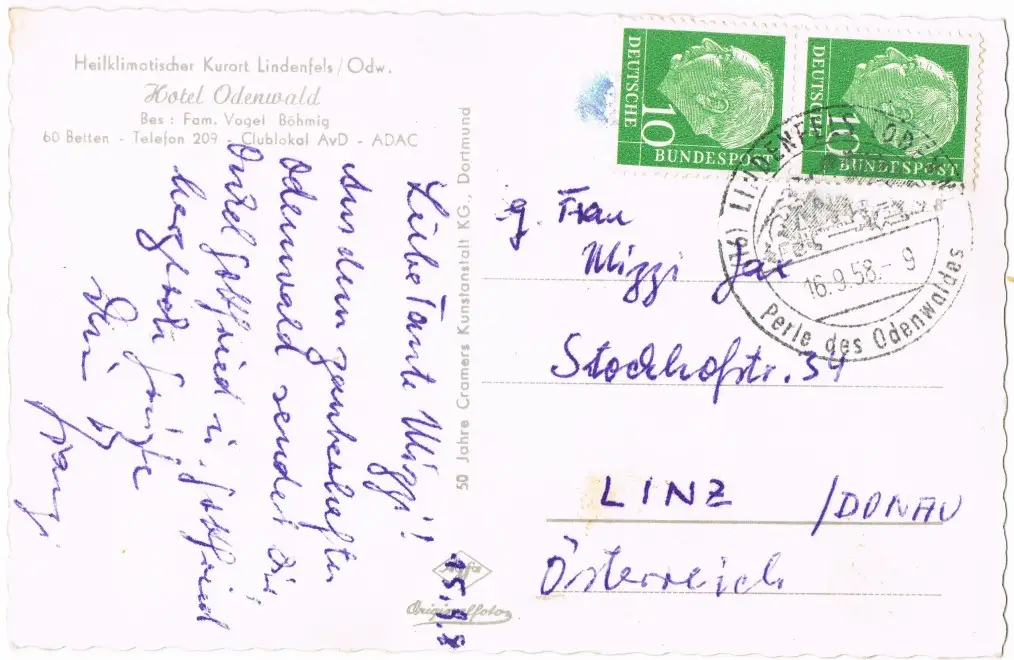 Heilklimatischer Kurort Lindenfels/Odw.
Hotel Odenwald
Bes : Fam. Vogel Böhmig
60 Betten - Telefon 209 - Clublokal AvD - ADAC
15.9.
Liebe Tante Mizzi!
Aus dem zauberhaften
Odenwald sendet Dir,
Onkel Gottfried u. Gottfried
herzliche Grüße
Dein
Franzi
50 Jahre Cramers Kunstanstalt KG., Dortmund
Agfa
Originalfoto
DEUTSCHE
10
BUNDESPOST
DEUTSCHE
10
BUNDESPOST
(16) LINDENFELS
16.9.58-9
Perle des Odenwaldes
g. Frau
Mizzi Jax
Stockhofstr. 34
LINZ /DONAU
Österreich